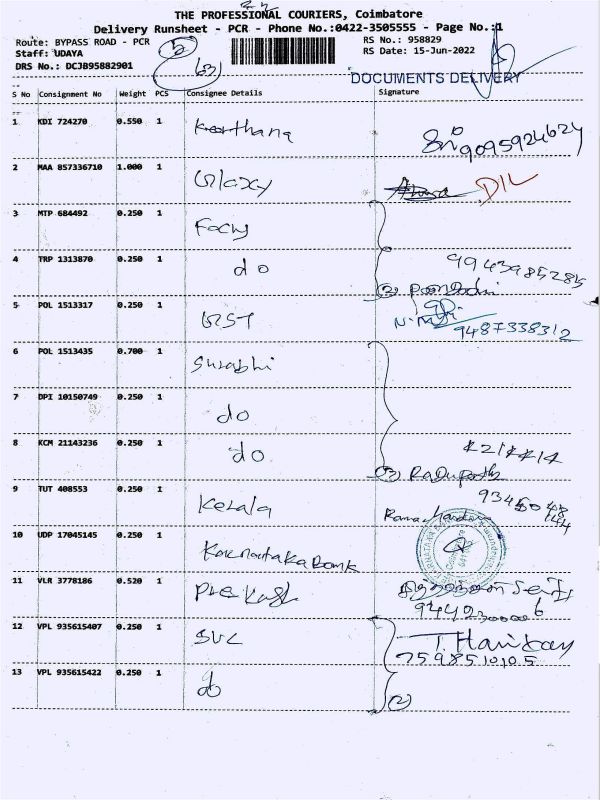 THE PROFESSIONAL COURIERS, Coimbatore
Delivery Runsheet - PCR - Phone No.:0422-3505555 - Page No.:1
Route: BYPASS ROAD - PCR
RS No.: 958829
Staff: UDAYA
RS Date: 15-Jun-2022
DRS No.: DCJB95882901
DOCUMENTS DELIVERY
S No Consignment No Weight PCS Consignee Details Signature
1 KDI 724270 0.550 1 Keerthana
9095924624
2 MAA 857336710 1.000 1 Galaxy
DIL
3 MTP 684492 0.250 1 Focus
4 TRP 1313870 0.250 1 do 9943985285
(2)
5 POL 1513317 0.250 1 GST
9487338312
6 POL 1513435 0.700 1 Surabhi
7 DPI 10150749 0.250 1 do
8 KCM 21143236 0.250 1 do
(3)
9 TUT 408553 0.250 1 Kerala
10 UDP 17045145 0.250 1 Karnataka Bank
11 VLR 3778186 0.520 1 Prakash
12 VPL 935615407 0.250 1 SVC
7598510105
13 VPL 935615422 0.250 1 do
(2)